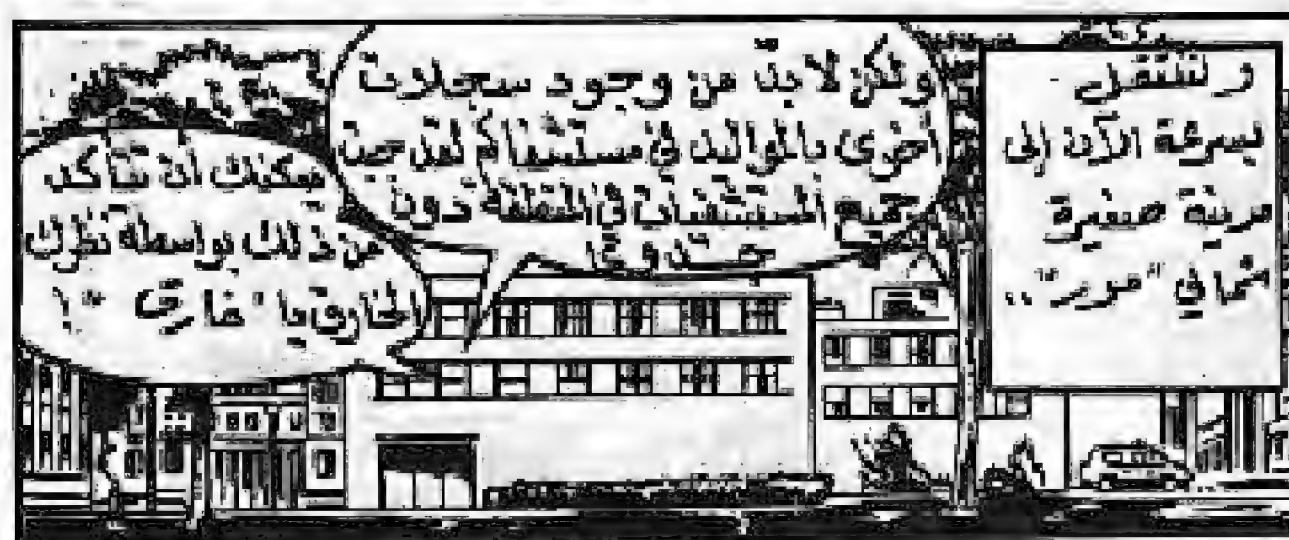 ولننتقل
بسرعة الآن إلى
مدينة صغيرة
شمالي "مور"..
ولكن لا بد من وجود سجلات
أخرى بالمواليد في مستشفاكم لقد جبت
جميع المستشفيات في المنطقة دون
يمكنك أن تتأكد
من ذلك بواسطة نظرك
الخارق يا "خارق"